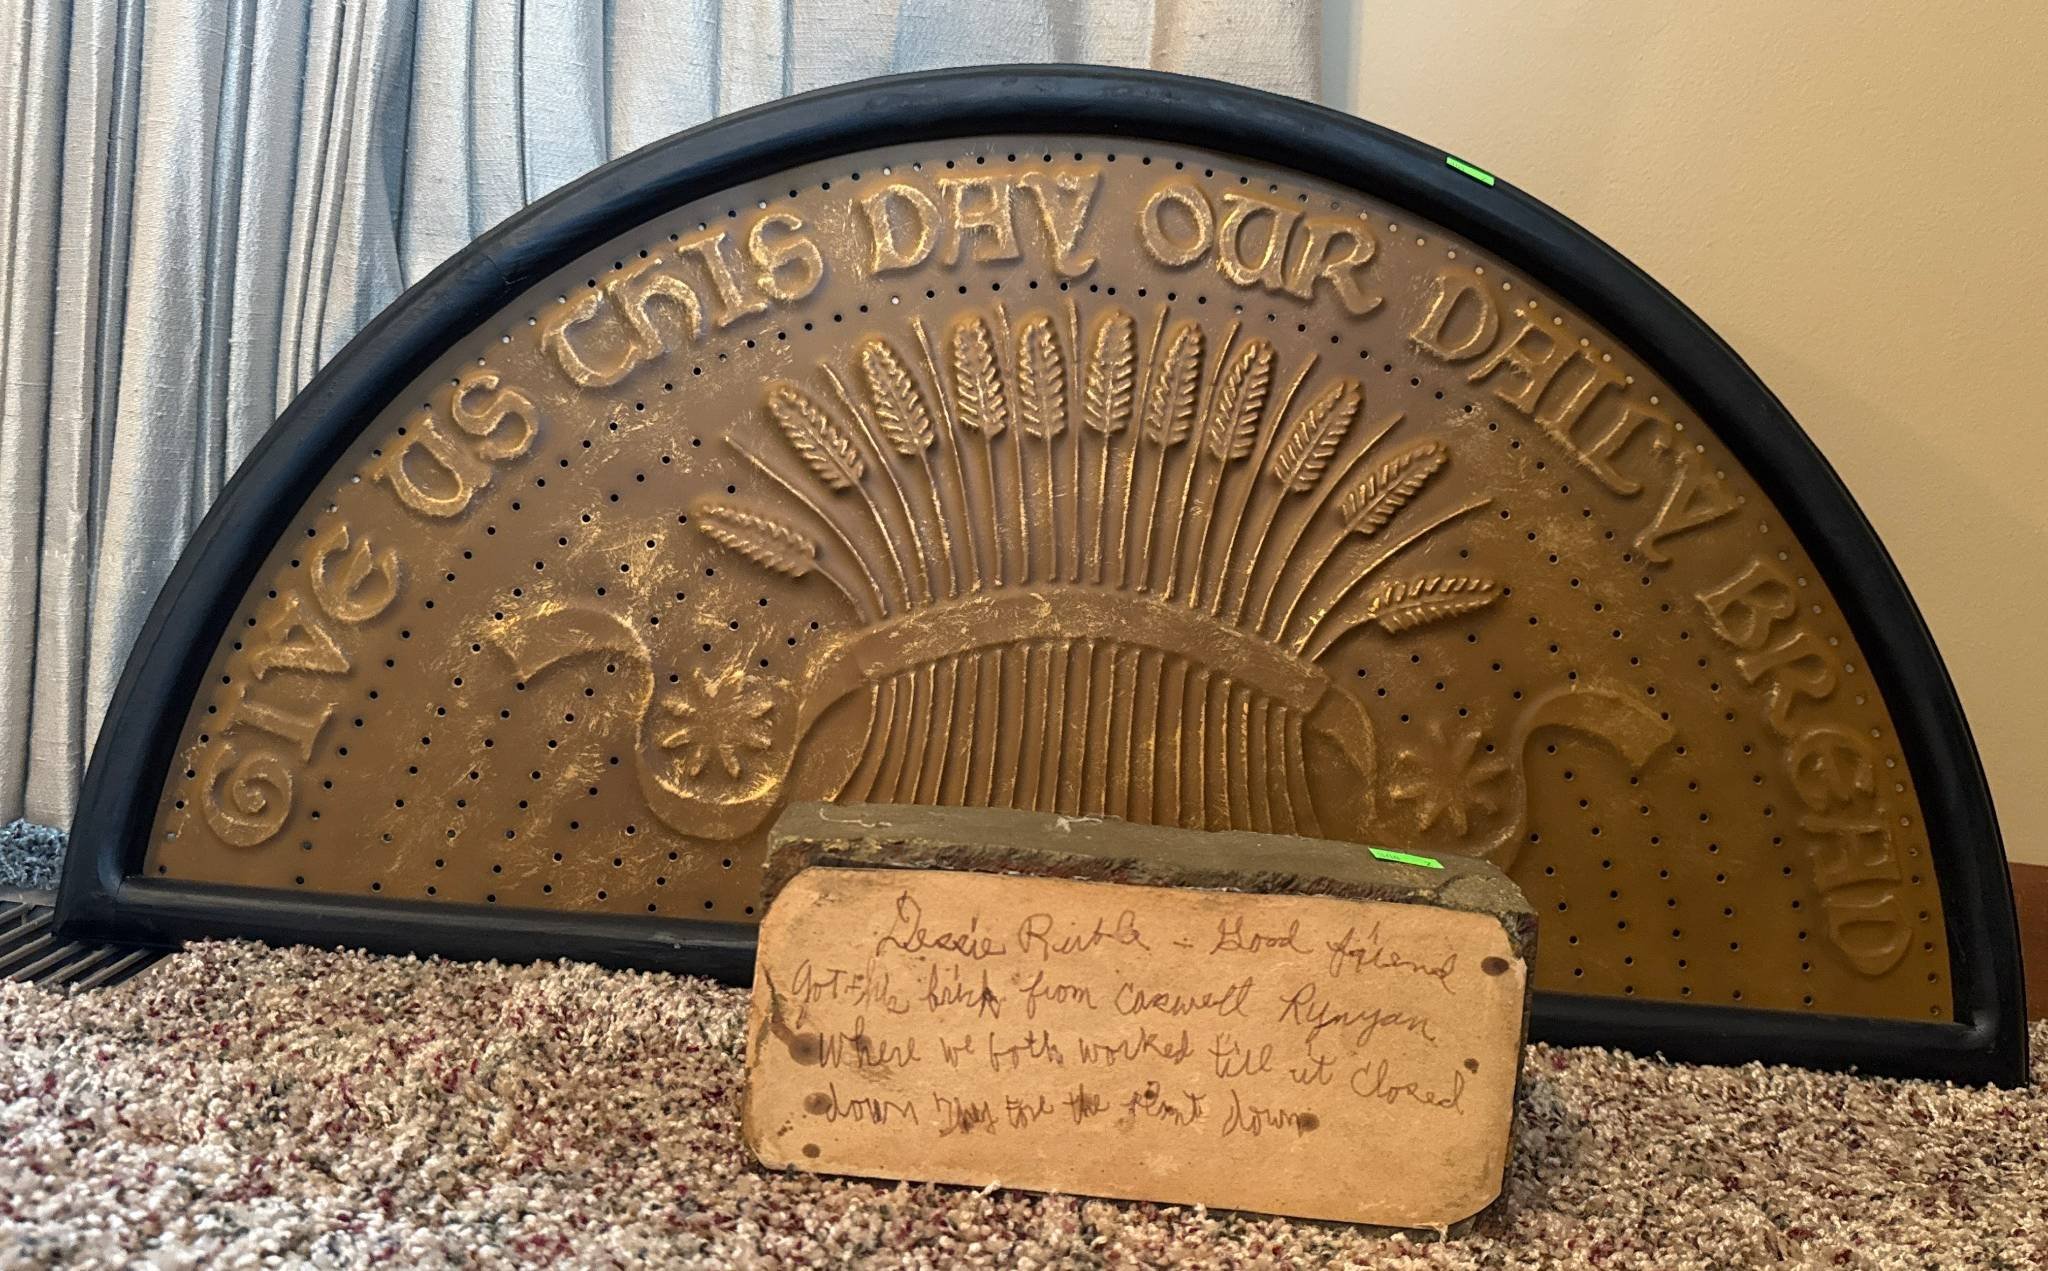 GIVE US THIS DAY OUR DAILY BREAD
Dessie - Good friend
got this brick from Caswell Runyan
Where we both worked till it closed
down they tore the plant down